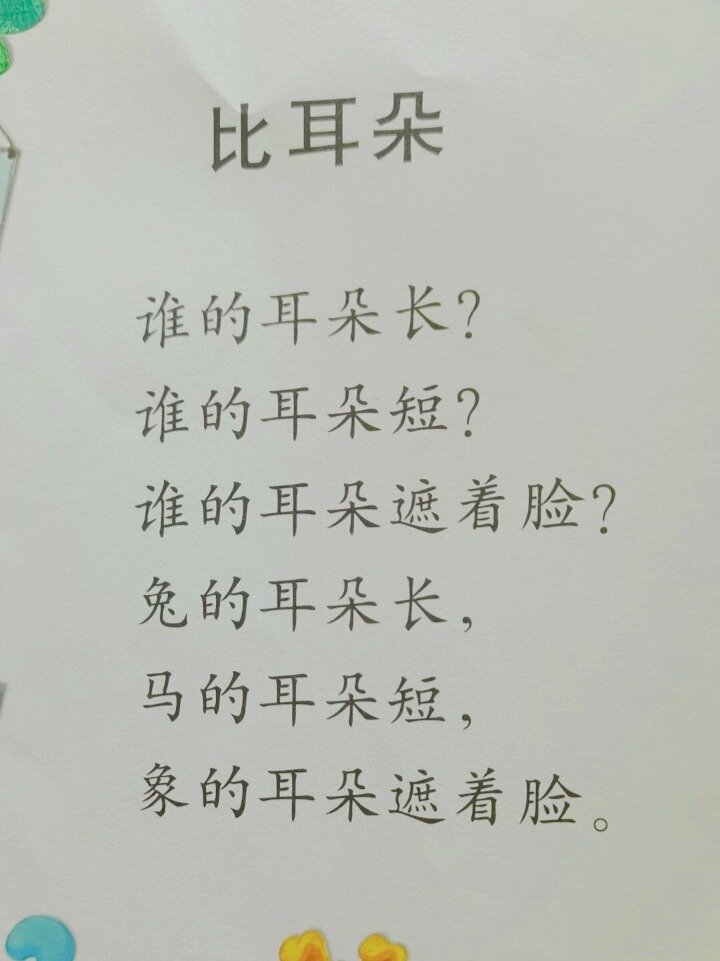 比耳朵
谁的耳朵长？
谁的耳朵短？
谁的耳朵遮着脸？
兔的耳朵长，
马的耳朵短，
象的耳朵遮着脸。